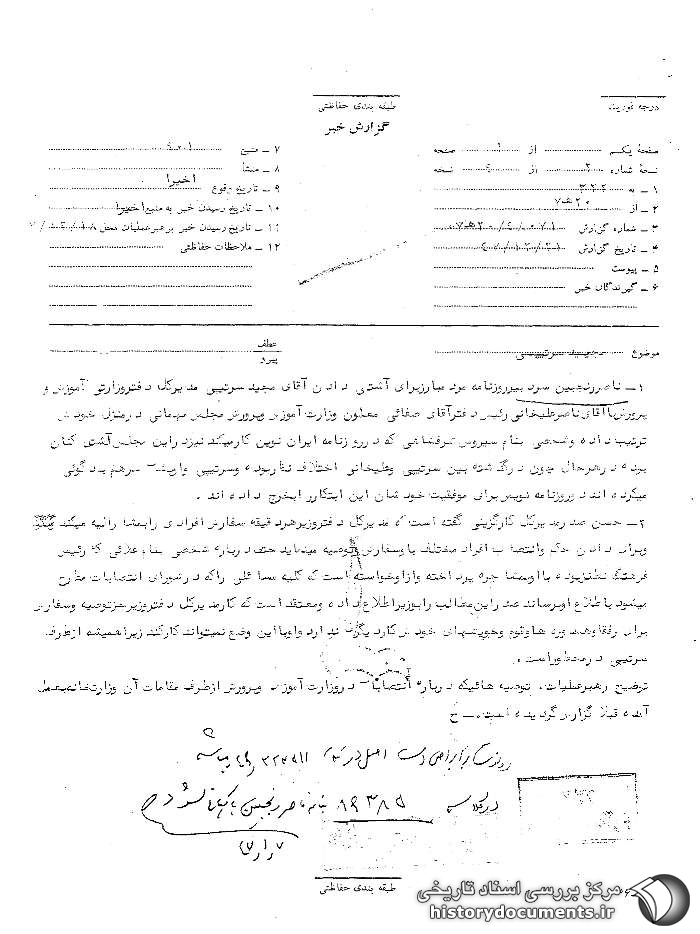 درجه فوریت
طبقه بندی حفاظتی
گزارش خبر
صفحه یکم از ۱ صفحه
نسخه شماره ۲ از ۴ نسخه
۱ ـ به ۳۲۲
۲ ـ از ۷ﻫ۲۰
۳ ـ شماره گزارش
۴ ـ تاریخ گزارش
۵ ـ پیوست
۶ ـ گیرندگان خبر
۷ ـ منبع ۴۰۱
۸ ـ منشأ
۹ ـ تاریخ وقوع اخیرا
۱۰ ـ تاریخ رسیدن خبر به منبع اخیرا
۱۱ ـ تاریخ رسیدن خبر به رهبر عملیات محل
۱۲ ـ ملاحظات حفاظتی
موضوع مجید سرتیپی
عطف
پیرو
۱ـ ناصر رنجبین سردبیر روزنامه مرد مبارز برای آشتی دادن آقای مجید سرتیپی مدیرکل دفتر وزارتی آموزش و
پرورش با آقای ناصر علیخانی رئیس دفتر آقای صفائی معاون وزارت آموزش و پرورش مجلس مهمانی در منزل خودش
ترتیب داده و شخصی بنام سیروس شرفشاهی که در روزنامه ایران نوین کار میکند نیز در این مجلس آشتی کنان
بوده در هر حال چون در گذشته بین سرتیپی و علیخانی اختلاف نظر بوده و سرتیپی و پشت سر هم بدگوئی
میکرده اند و روزنامه نویس برای موفقیت خودشان این ابتکار را بخرج داده اند .
۲ـ حسن صدر مدیرکل کارگزینی گفته است که مدیرکل دفتر وزیر هر دقیقه سفارش افرادی را بمن میکند
و برای دادن حکم و انتصاب افراد مختلف باو سفارش و توصیه مینماید حتی درباره شخصی بنام علائی که رئیس
فرهنگ نطنز بوده با او بمشاجره پرداخته و از او خواسته است که کلیه مسائلی را که در شورای انتصابات مطرح
میشود باطلاع او برساند صدر این مطالب را بوزیر اطلاع داده و معتقد است که کار مدیرکل دفتر وزیر جز توصیه و سفارش
برای رفقا و خویشهای خود کار دیگری ندارد و او با این وضع نمیتواند کار کند زیرا همیشه از طرف
سرتیپی در محظور است .
توضیح رهبر عملیات ، توصیه هائیکه درباره انتصابات در وزارت آموزش و پرورش از طرف مقامات آن وزارتخانه بعمل
آمده قبلا گزارش گردیده است . ـ ح
۳۲۲۵۱۱
در کلاسه ۸۹۳۸۵ بنام ناصر رنجبین بایگانی شود
طبقه بندی حفاظتی
مرکز بررسی اسناد تاریخی
historydocuments.ir